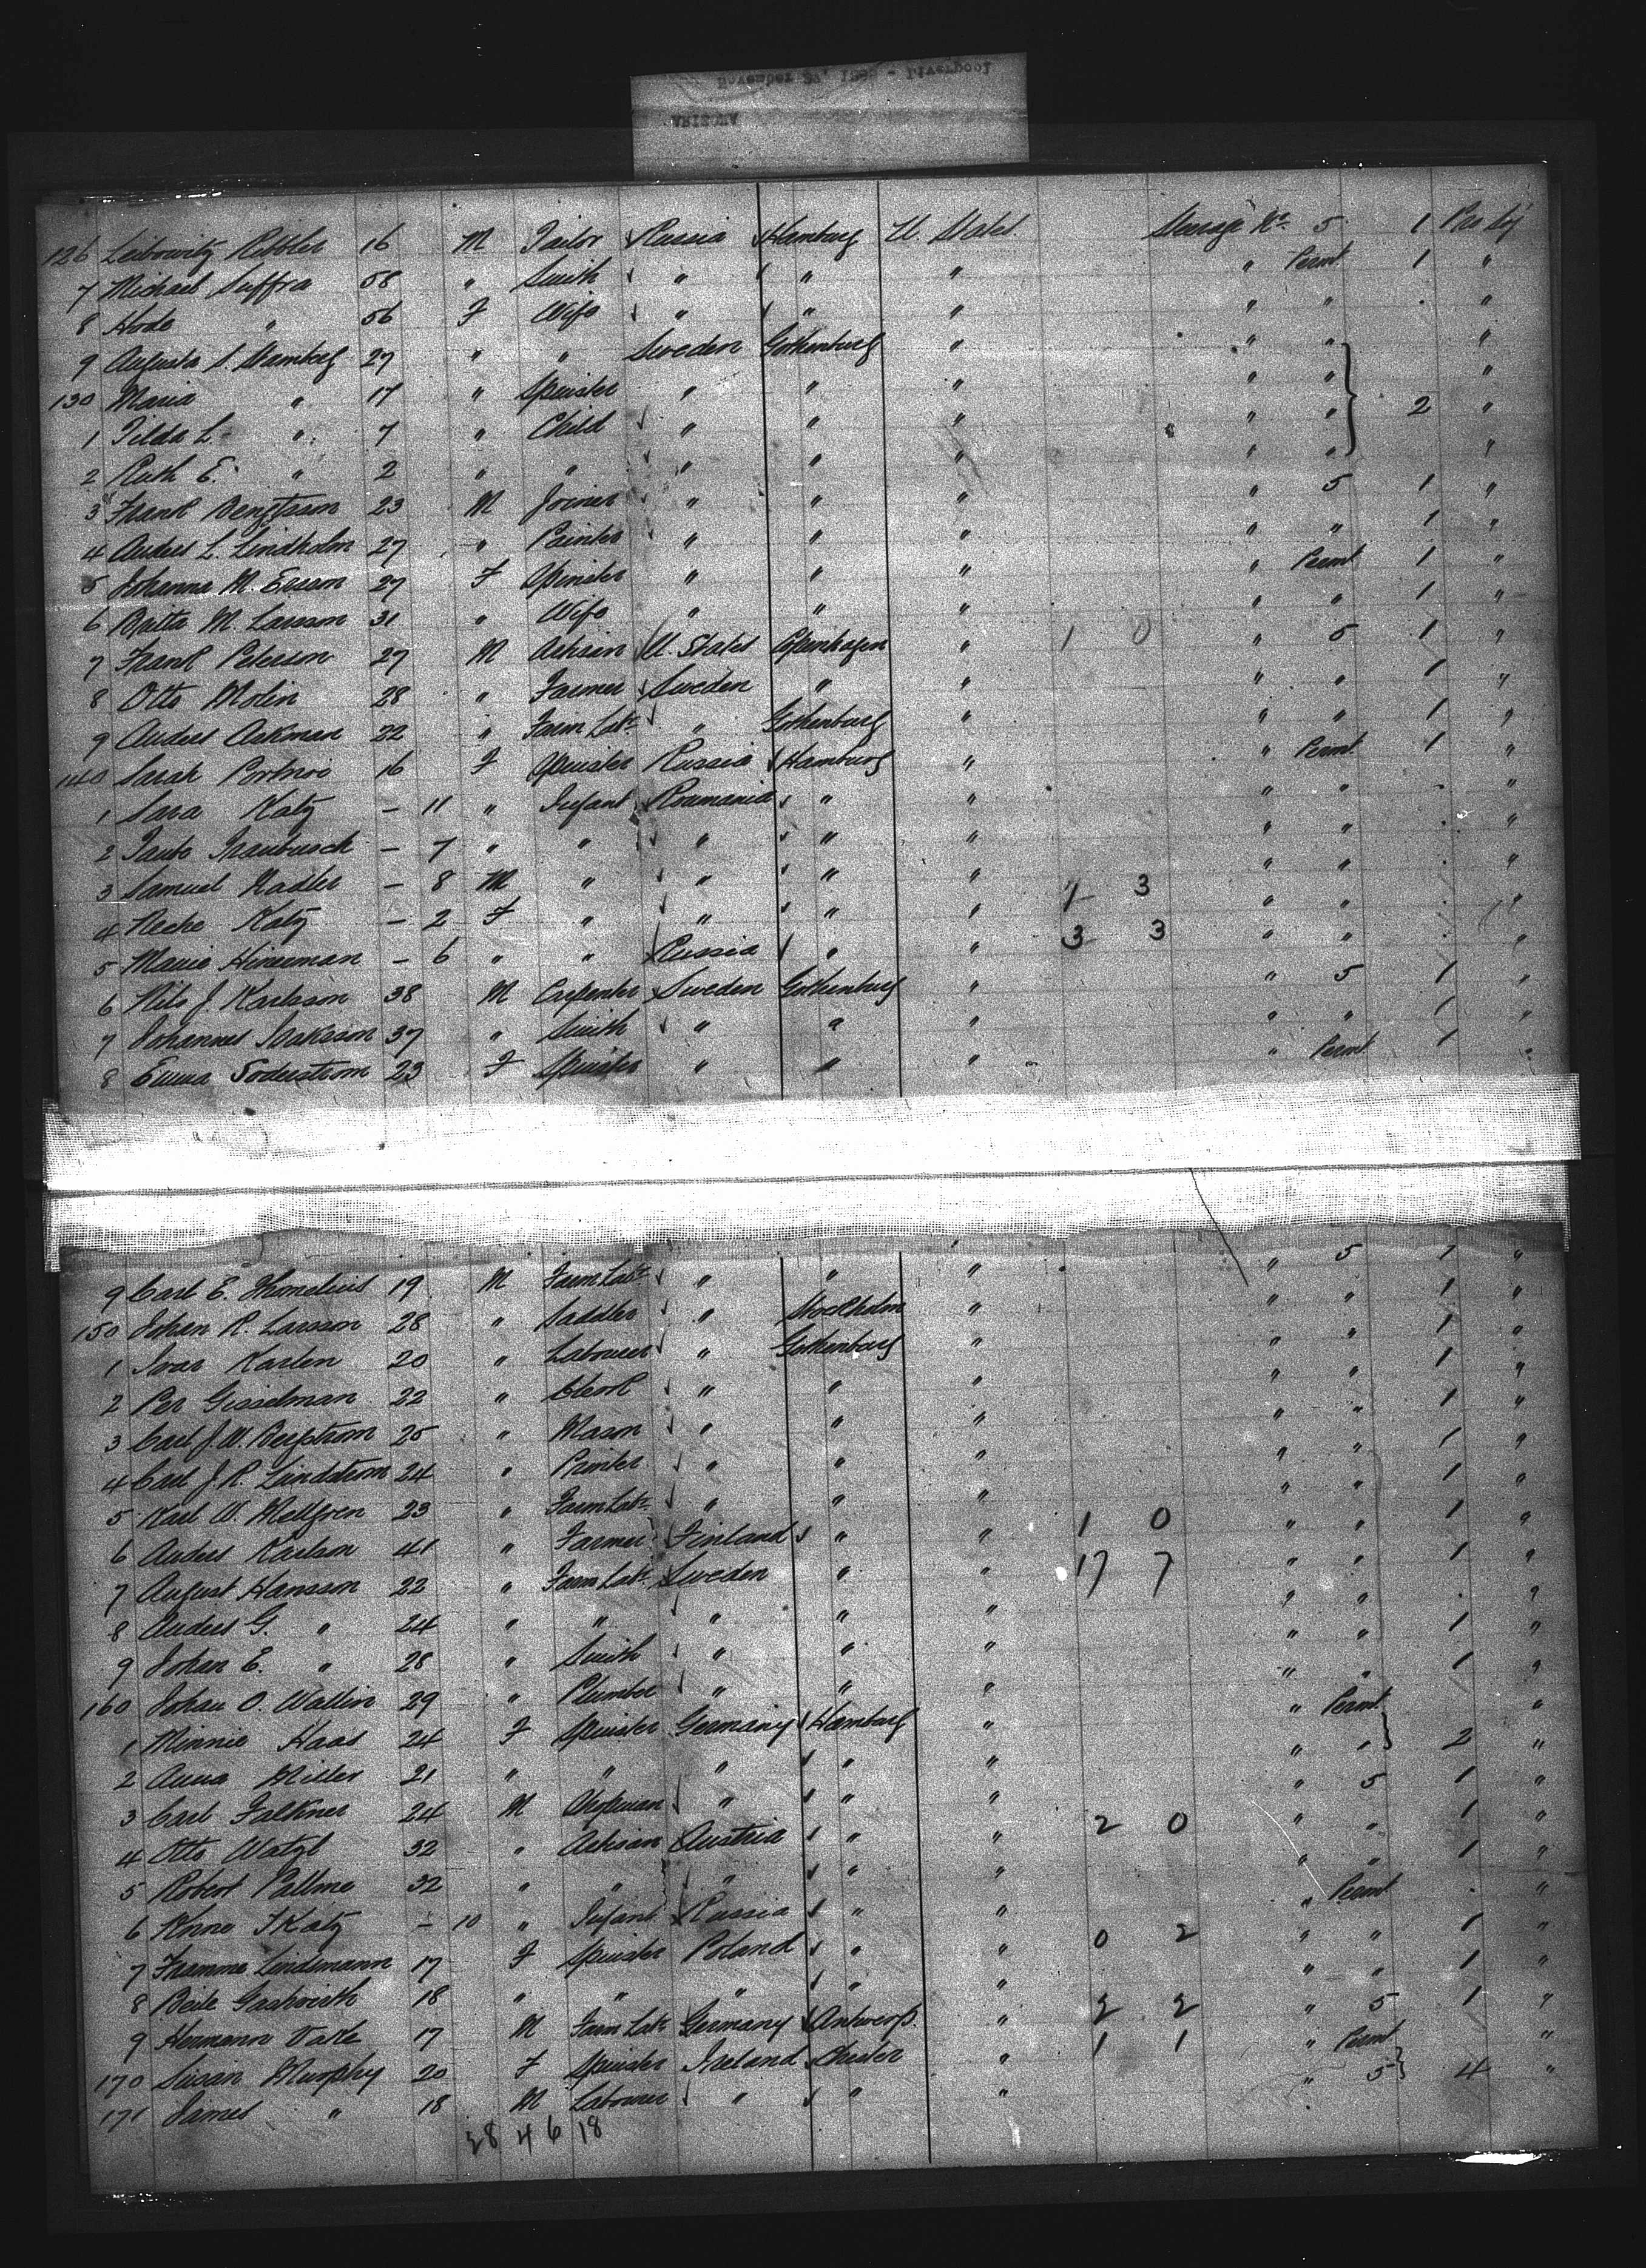 November 27, 189 - Liverpool
ARIZONA
126 Leibowitz 16 M Tailor Russia Hamburg U. States Steerage No. 5 1
7 Michael Suffra 58 " Smith " " " " Permt 1 "
8 Hode " 56 F Wife " " " " " . "
9 Augusta S. 27 " " Sweden Gothenburg " " " "
130 Maria " 17 " Spinster " " " " " "
1 Tilda L. " 7 " Child " " " " " 2 "
2 Ruth E. " 2 " " " " " " " "
3 Frank Bengtsson 23 M Joiner " " " " 5 1 "
4 Anders L. Lindholm 27 " Painter " " " " " 1 "
5 Johanna M. 27 F Spinster " " " " Permt 1 "
6 Britta M. Larsson 31 " Wife " " " " " 1 "
7 Frank Peterson 27 M Artisan U. States Copenhagen " 1 0 " 5 1 "
8 Otto Molin 28 " Farmer Sweden " " " " 1 "
9 Anders Ackman 22 " Farm Labr " Gothenburg " " " 1 "
140 Sarah Portnoi 16 F Spinster Russia Hamburg " " Permt 1 "
1 Sara Katz - 11 " Infant Roumania " " " " "
2 Taube - 7 " " " " " " " . "
3 Samuel Nadler - 8 M " " " " 7 3 " " . "
4 Neche Katz - 2 F " " " " 3 3 " " . "
5 Marie - 6 " " Russia " " " " . "
6 Nils J. Karlsson 38 M Carpenter Sweden Gothenburg " " 5 1 "
7 Johannes Isaksson 37 " Smith " " " " " 1 "
8 Emma Soderstrom 23 F Spinster " " " " Permt 1 "
9 Carl E. 19 M Farm Labr " " " " 5 1 "
150 Johan R. Larsson 28 " Saddler " Stockholm " " " 1 "
1 Ivar Karlen 20 " Labourer " Gothenburg " " " 1 "
2 Per Gisselman 22 " Clerk " " " " " 1 "
3 Carl J. W. Bergstrom 25 " Mason " " " " " 1 "
4 Carl J. R. Lindstrom 24 " Printer " " " " " 1 "
5 Karl W. Mellgren 23 " Farm Labr " " " " " 1 "
6 Anders Karlson 41 " Farmer Finland " " 1 0 " " 1 "
7 August Hansson 22 " Farm Labr Sweden " " 17 7 " " 1 "
8 Anders G. " 24 " " " " " " " . "
9 Johan E. " 28 " Smith " " " " " 1 "
160 Johan O. Wallin 29 " Plumber " " " " " 1 "
1 Minnie Haas 24 F Spinster Germany Hamburg " " Permt "
2 Anna Miller 21 " " " " " " " 2 "
3 Carl Falkner 24 M Shopman " " " " 5 1 "
4 Otto Watzl 32 " Artisan Austria " " 2 0 " " 1 "
5 Robert Pallme 32 " " " " " " " 1 "
6 Katz - 10 " Infant Russia " " " Permt . "
7 Lindemann 17 F Spinster Poland " " 0 2 " " 1 "
8 Beile 18 " " " " " " " 1 "
9 Hermann 17 M Farm Labr Germany Antwerp. " 2 2 " 5 1 "
170 Susan Murphy 20 F Spinster Ireland Chester " 1 1 " Permt "
171 James " 18 M Labourer " " " " 5 4 "
28 4 6 18